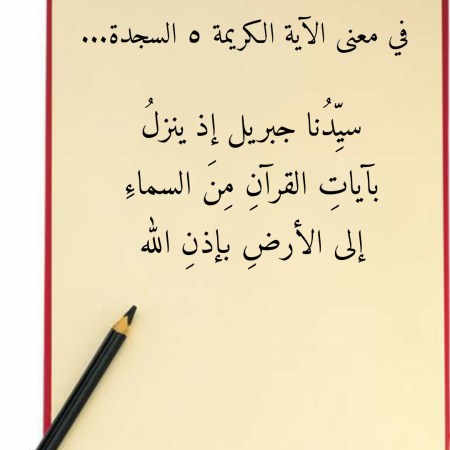 في معنى الآية الكريمة ٥ السجدة...
سيِّدُنا جبريل إذ ينزلُ
بآياتِ القرآنِ مِنَ السماءِ
إلى الأرضِ بإذنِ الله